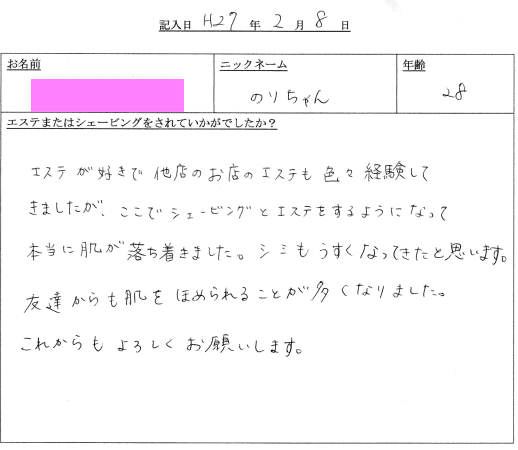 記入日 H27 年 2 月 8 日
お名前 ニックネーム 年齢
のりちゃん 28
エステまたはシェービングをされていかがでしたか？
エステが好きで他店のお店のエステも色々経験して
きましたが、ここでシェービングとエステをするようになって
本当に肌が落ち着きました。シミもうすくなってきたと思います。
友達からも肌をほめられることが多くなりました。
これからもよろしくお願いします。